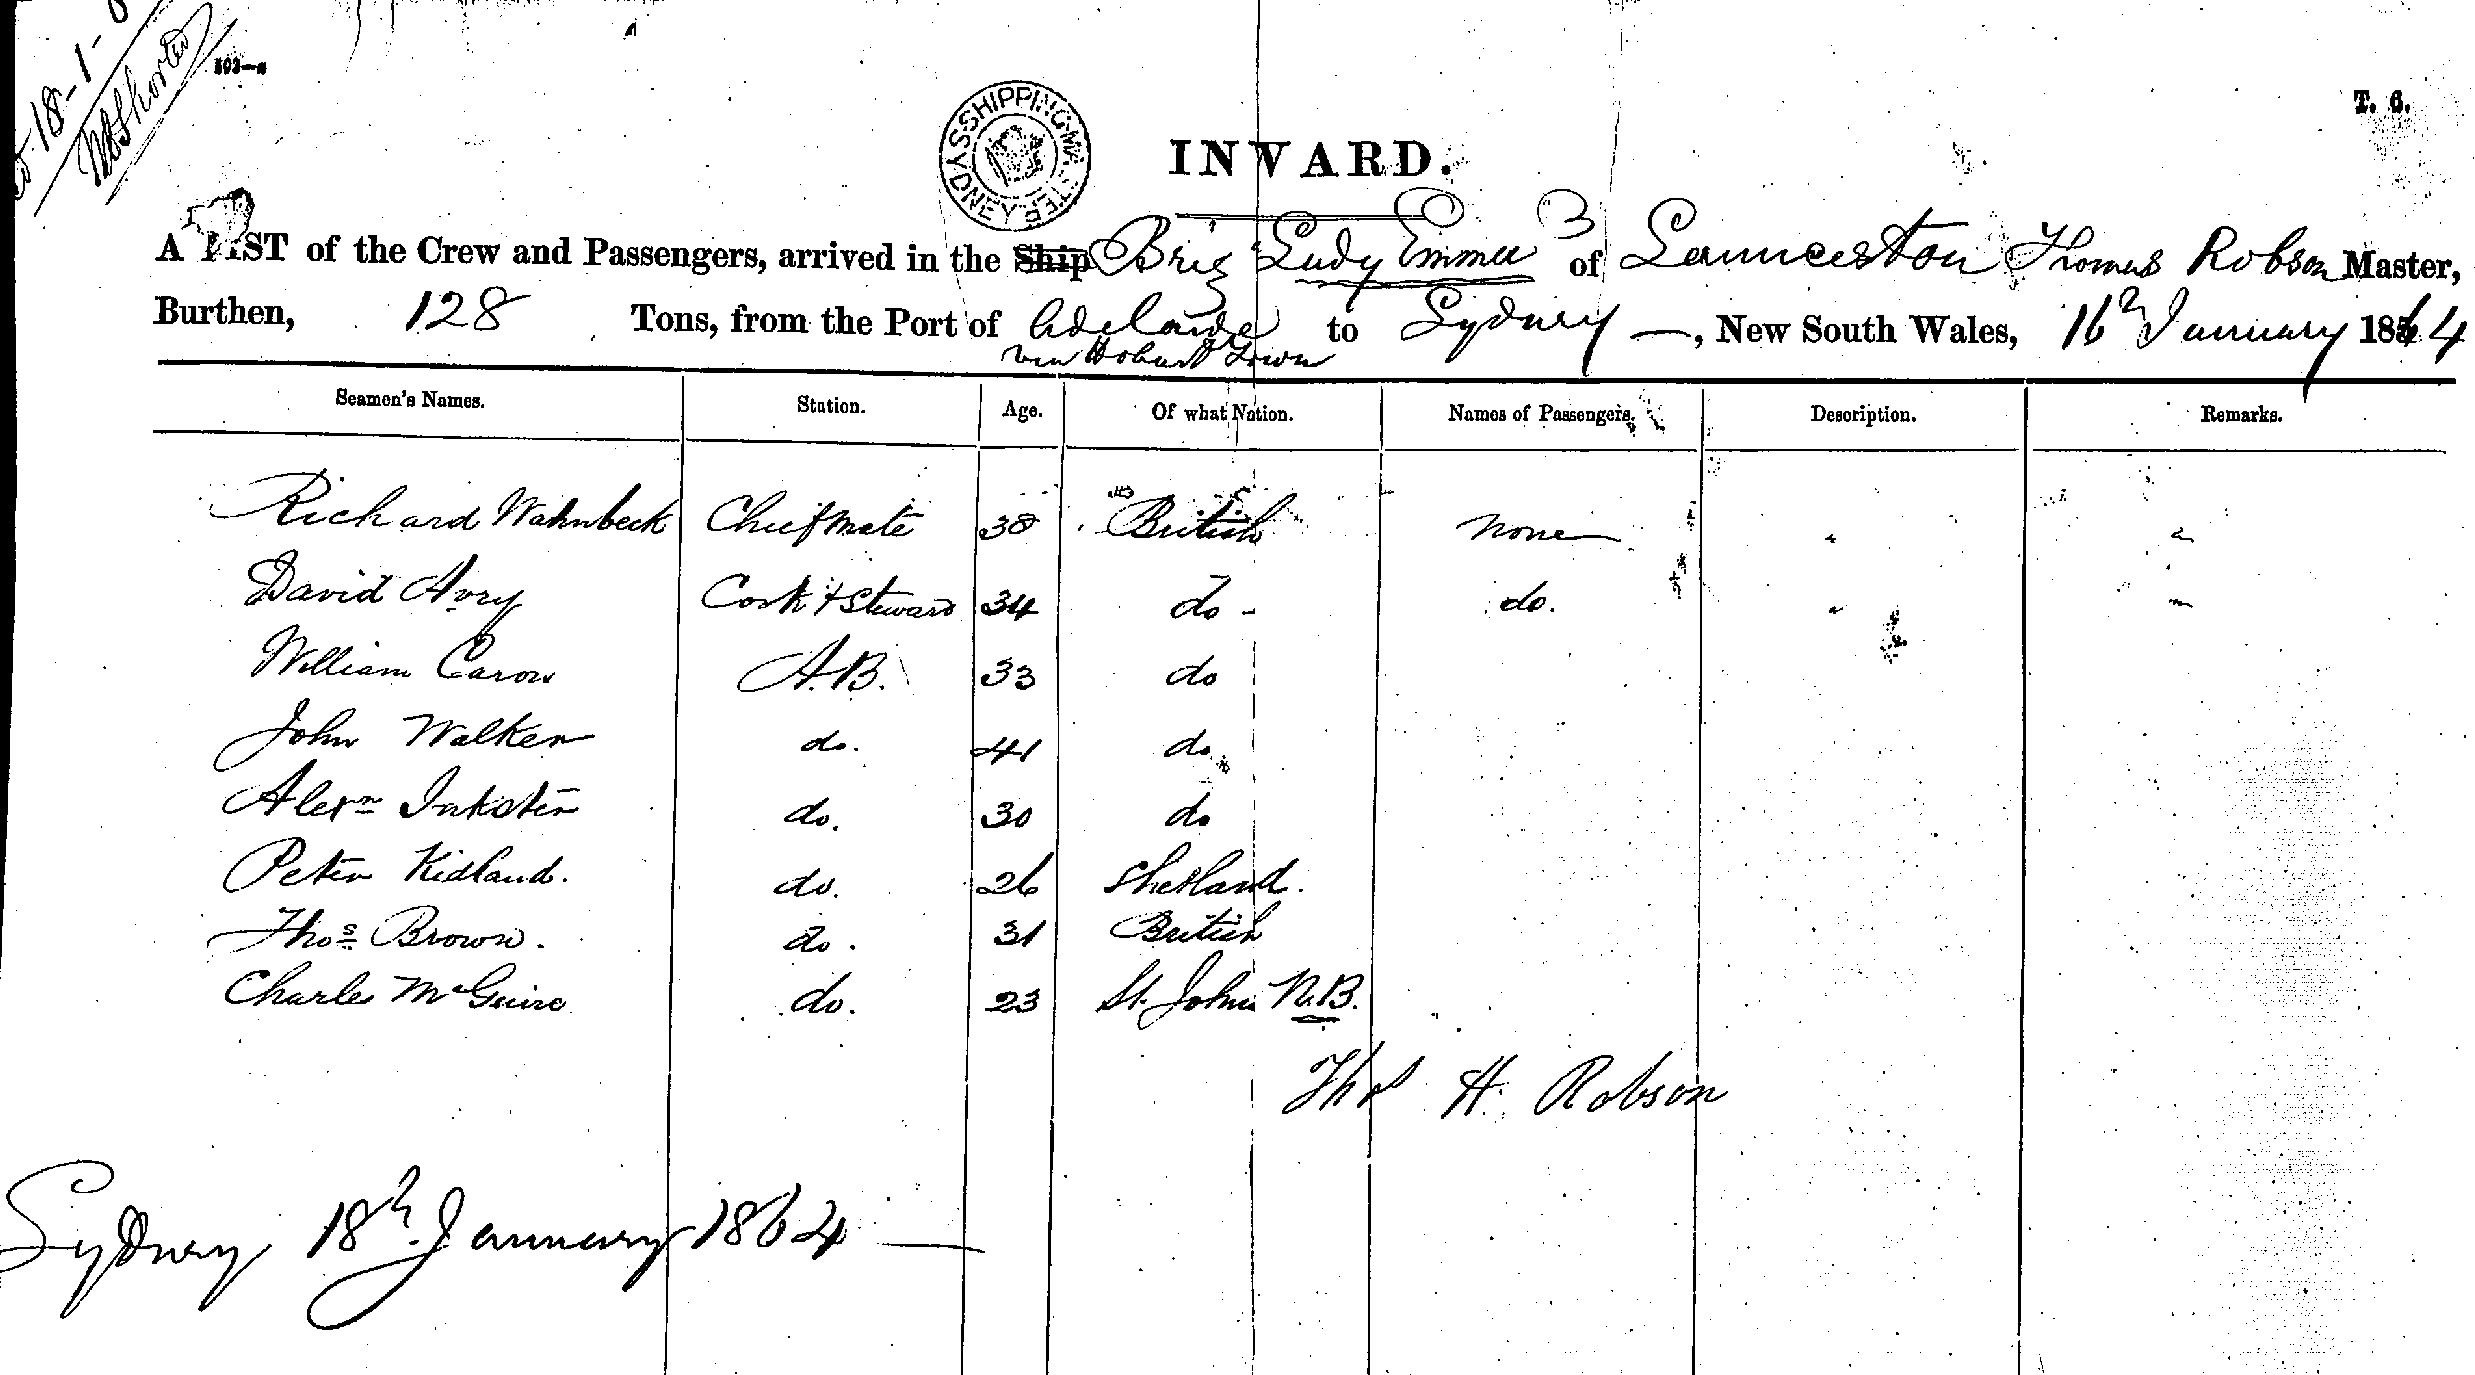 18-1-
103—a
T. 6.
SYDNEY SHIPPING MASTER
INWARD.
A LIST of the Crew and Passengers, arrived in the Ship Brig Lady Emma of Launceston Thomas Robson Master,
Burthen, 128 Tons, from the Port of Adelaide to Sydney —, New South Wales, 16th January 1864
via Hobart Town
Seamen's Names. Station. Age. Of what Nation. Names of Passengers. Description. Remarks.
Richard Wahnbeck Chief Mate 38 British none
David Avry Cook & Steward 34 do - do.
William Carow A.B. 33 do
John Walker do. 41 do
Alexr Inkster do. 30 do
Peter Kidland. do. 26 Shetland.
Thos Brown. do. 31 British
Charles McGuire do. 23 St. Johns N.B.
Thos H. Robson
Sydney 18th January 1864 —